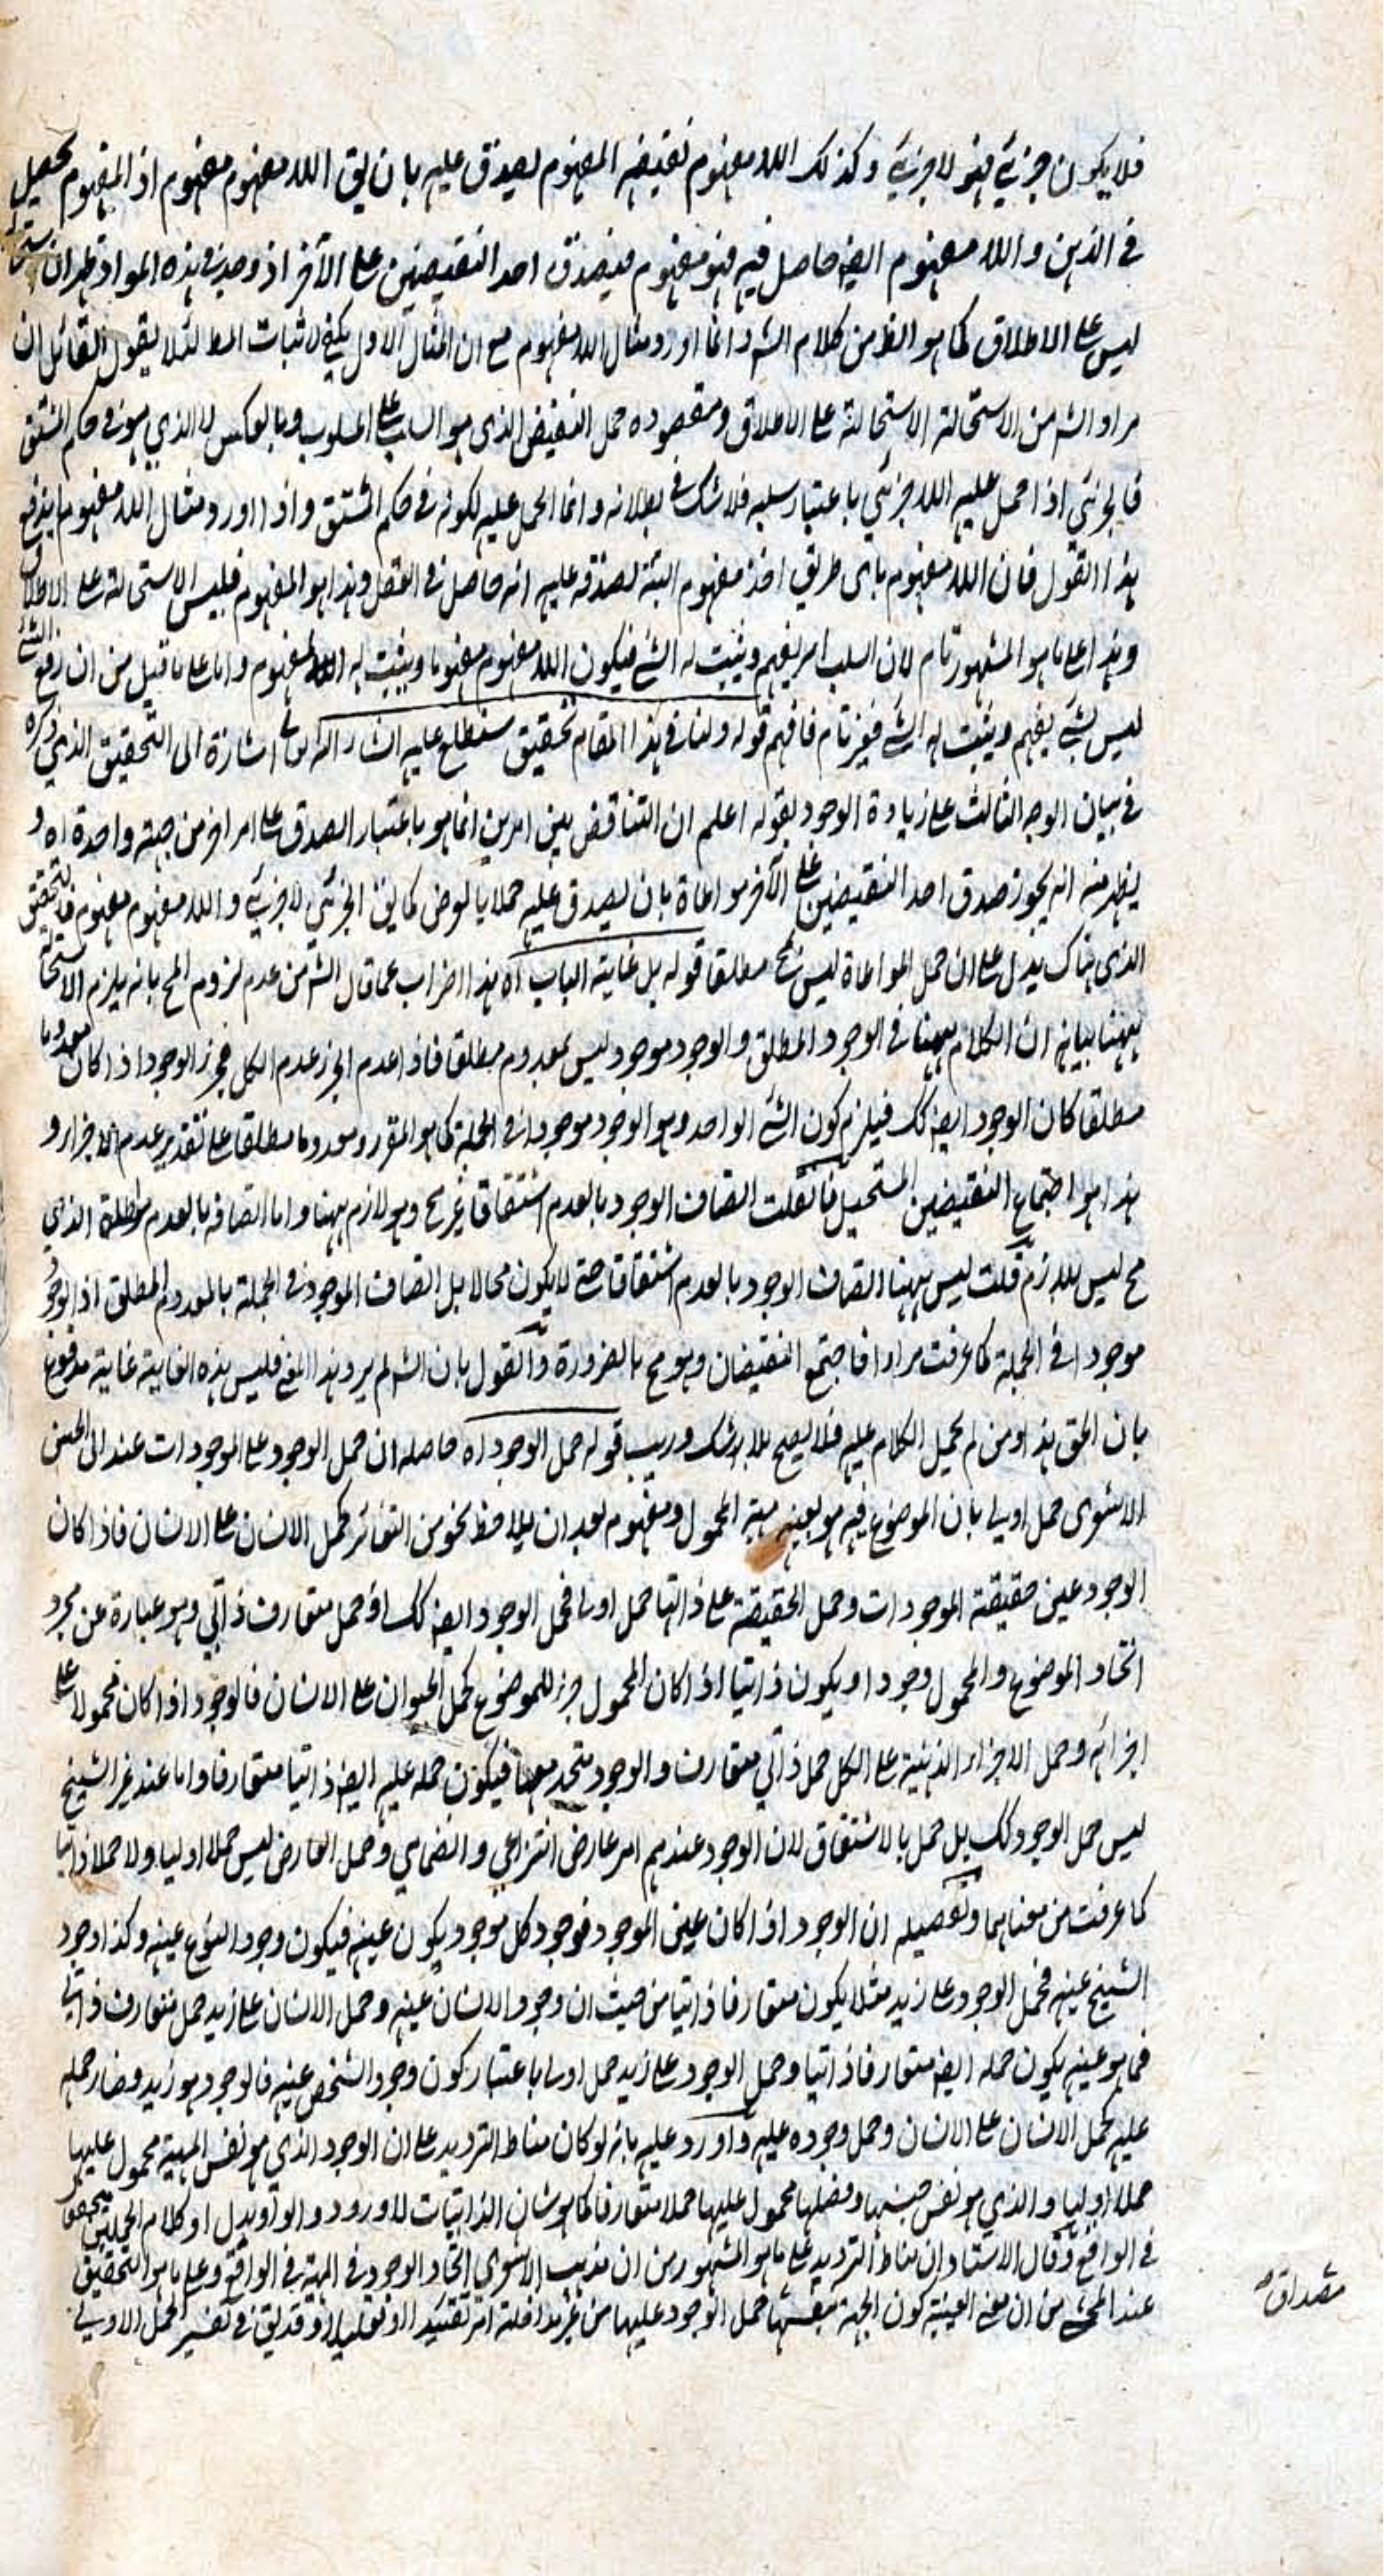 فلا يكون جزئي فهو لا جزئي وكذلك اللا مفهوم نقيضه المفهوم يصدق عليه بان يق اللا مفهوم مفهوم اذ المفهوم يحصل
في الذهن واللا مفهوم ايضه حاصل فيه فهو مفهوم فيصدق احد النقيضين على الآخر اذ وجد في هذه المواد فظهر ان استحالته
ليس على الاطلاق كما هو الظ من كلام الشه وانما اورد مثال اللا مفهوم مع ان المثال الاول يكفي لاثبات المط لئلا يقول القائل ان
مراد الشه من الاستحالة الاستحالة على الاطلاق ومقصوده حمل النقيض الذي هو السالب على المسلوب وبالعكس لا الذي هو في حكم المشتق
فالجزئي اذا حمل عليه اللا جزئي باعتبار سلبه فلا شك في بطلانه وانما الحمل عليه لكونه في حكم المشتق واذا اورد مثال اللا مفهوم اندفع
هذا القول فان اللا مفهوم باي طريق اخذ مفهوم البتة لصدقه عليه انه حاصل في العقل وهذا هو المفهوم فليس الاستحالة على الاطلاق
وهذا على ما هو المشهور تام لان السلب امر يفهم ويثبت له الشئ فيكون اللا مفهوم مفهوما ويثبت له اللا مفهوم واما على ما قيل من ان رفع الشئ
ليس بشئ يفهم ويثبت له الشئ فغير تام فافهم قوله ولنا في هذا المقام تحقيق ستطلع عليه انشاء الله تعالى اشارة الى التحقيق الذي ذكره
في بيان الوجه الثالث على زيادة الوجود بقوله اعلم ان التناقض بين امرين انما هو باعتبار الصدق على امر آخر من جهة واحدة اه و
يظهر منه انه يجوز صدق احد النقيضين على الآخر مواطاة بان يصدق عليه حملا بالعرض كما يق الجزئي لا جزئي واللا مفهوم مفهوم فالتحقيق
الذي هناك يدل على ان حمل المواطاة ليس مح مطلقا قوله بل غاية الباب اه هذا اضراب عما قال الشه من عدم لزوم المح بانه يلزم الاستحالة
ههنا بيانه ان الكلام ههنا في الوجود المطلق والوجود موجود ليس بمعدوم مطلق فاذا عدم الجزء عدم الكل فجزء الوجود اذا كان معدوما
مطلقا كان الوجود ايضه كك فيلزم كون الشئ الواحد وهو الوجود موجودا في الجملة كما هو المقرر ومعدوما مطلقا على تقدير عدم الاجزاء و
هذا هو اجتماع النقيضين المستحيل فان قلت اتصاف الوجود بالعدم اشتقاقا غير مح وهو لازم ههنا واما اتصافه بالعدم مواطاة الذي
مح ليس بلازم قلت ليس ههنا اتصاف الوجود بالعدم اشتقاقا حتى لا يكون محالا بل اتصاف الموجود في الجملة بالمعدوم المطلق اذ الوجود
موجود في الجملة كما عرفت مرارا فاجتمع النقيضان وهو مح بالضرورة والقول بان الشه لم يرد هذا المعنى فليس هذه الغاية غاية مدفوع
بان الحق هذا ومن لم يحمل الكلام عليه فلا يصح بلا شك وريب قوله حمل الوجود اه حاصله ان حمل الوجود على الموجودات عند ابي الحسن
الاشعري حمل اولي بان الموضوع فيه هو بعينه مهية المحمول ومفهومه بعد ان يلاحظ نحو من التغائر كحمل الانسان على الانسان فاذا كان
الوجود عين حقيقة الموجودات وحمل الحقيقة على ذاتها حمل اولي فحمل الوجود ايضه كك او حمل متعارف ذاتي وهو عبارة عن مجرد
اتحاد الموضوع والمحمول وجودا ويكون ذاتيا اذا كان المحمول جزء للموضوع كحمل الحيوان على الانسان فالوجود اذا كان محمولا على
اجزائه وحمل الاجزاء الذهنية على الكل حمل ذاتي متعارف والوجود متحد معها فيكون حمله عليه ايضه ذاتيا متعارفا واما عند غير الشيخ
ليس حمل الوجود كك بل حمل بالاشتقاق لان الوجود عندهم امر عارض انتزاعي وانضمامي وحمل العارض ليس حملا اوليا ولا حملا ذاتيا
كما عرفت من معناهما وتفصيله ان الوجود اذا كان عين الموجود فوجود كل موجود يكون عينه فيكون وجود النوع عينه وكذا وجود
الشيخ عينه فحمل الوجود على زيد مثلا يكون متعارفا ذاتيا من حيث ان وجود الانسان عينه وحمل الانسان على زيد حمل متعارف ذاتي
فما هو عينه يكون حمله ايضه متعارفا ذاتيا وحمل الوجود على زيد حمل اوليا باعتبار كون وجود الشخص عينه فالوجود هو زيد وصار حمله
عليه كحمل الانسان على الانسان وحمل وجوده عليه واورد عليه بانه لو كان مناط الترديد على ان الوجود الذي هو نفس المهية محمول عليها
حملا اوليا والذي هو نفس جنسها وفصلها محمول عليها حملا متعارفا كما هو شان الذاتيات لاورد الواو بدل او كلا الحملين
في الواقع وقال الاستاد ان مناط الترديد على ما هو المشهور من ان مذهب الاشعري اتحاد الوجود في المهية في الواقع وعلى ما هو التحقيق
عند المحشي من ان معنى العينية كون المهية بنفسها حمل الوجود عليها من غير مداخلة امر تقييدا او تعليلا وقد يق في تفسير الحمل الاولي
مصداق